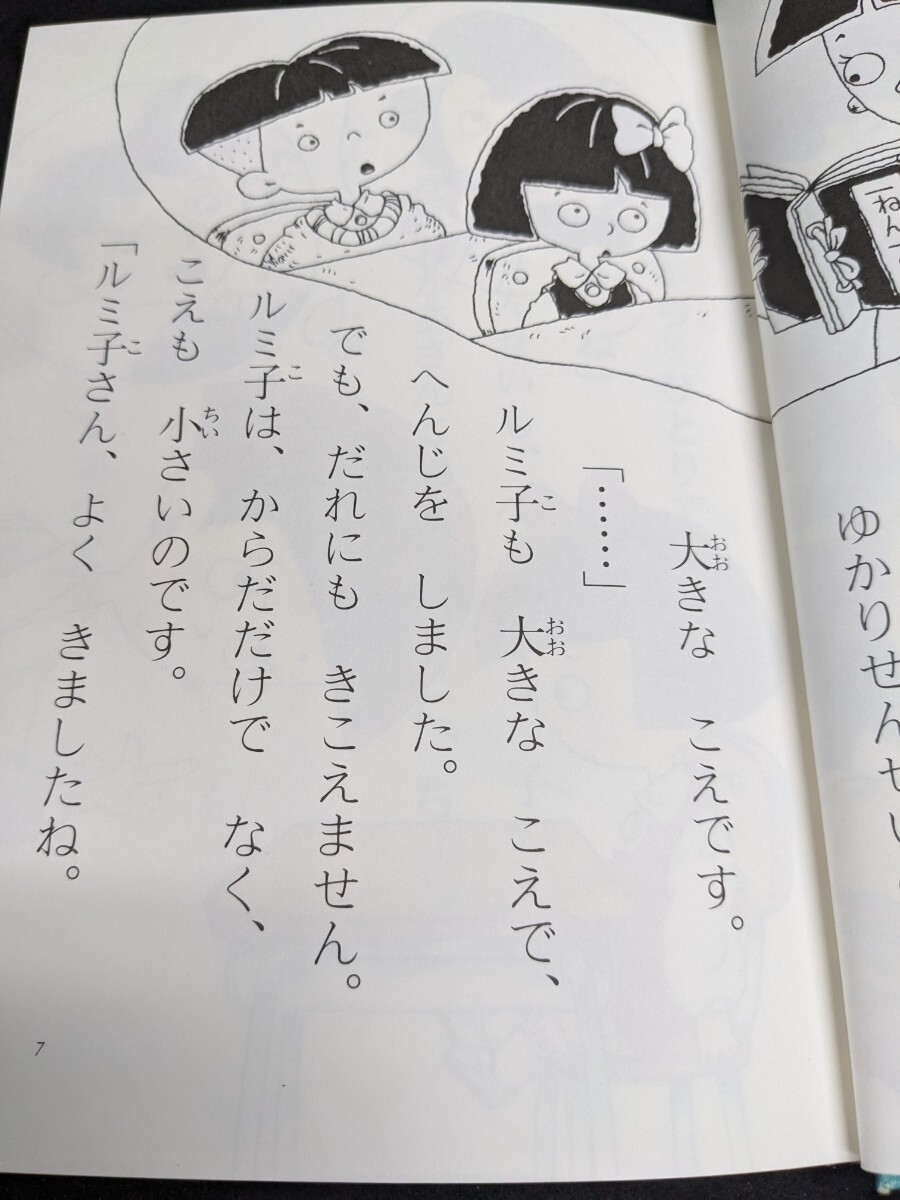 一ねん
ゆかりせんせい
大きな　こえです。
「……」
ルミ子も　大きな　こえで、
へんじを　しました。
でも、だれにも　きこえません。
ルミ子は、からだだけで　なく、
こえも　小さいのです。
「ルミ子さん、よく　きましたね。
7